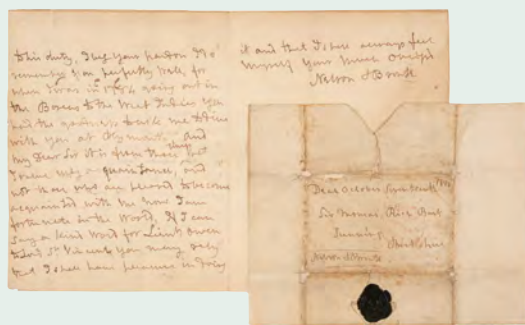 this duty, I beg your pardon I do
remember you perfectly well, for
when I was in 1784 going out in
the Boreas to the West Indies you
had the goodness to ask me to dine
with you at Plymouth, and
my Dear Sir it is from those
and
not those who are
acquainted with me now I am
fortunate in the World, If I can
say a kind word for Lieut: Owen
to Lord St Vincent you may rely
that I shall have pleasure in doing
it and that I shall always feel
Myself Your Much Oblig'd
Nelson & Bronte
October
Sir Thomas Rich Bart
Sunning
Berkshire
Nelson & Bronte